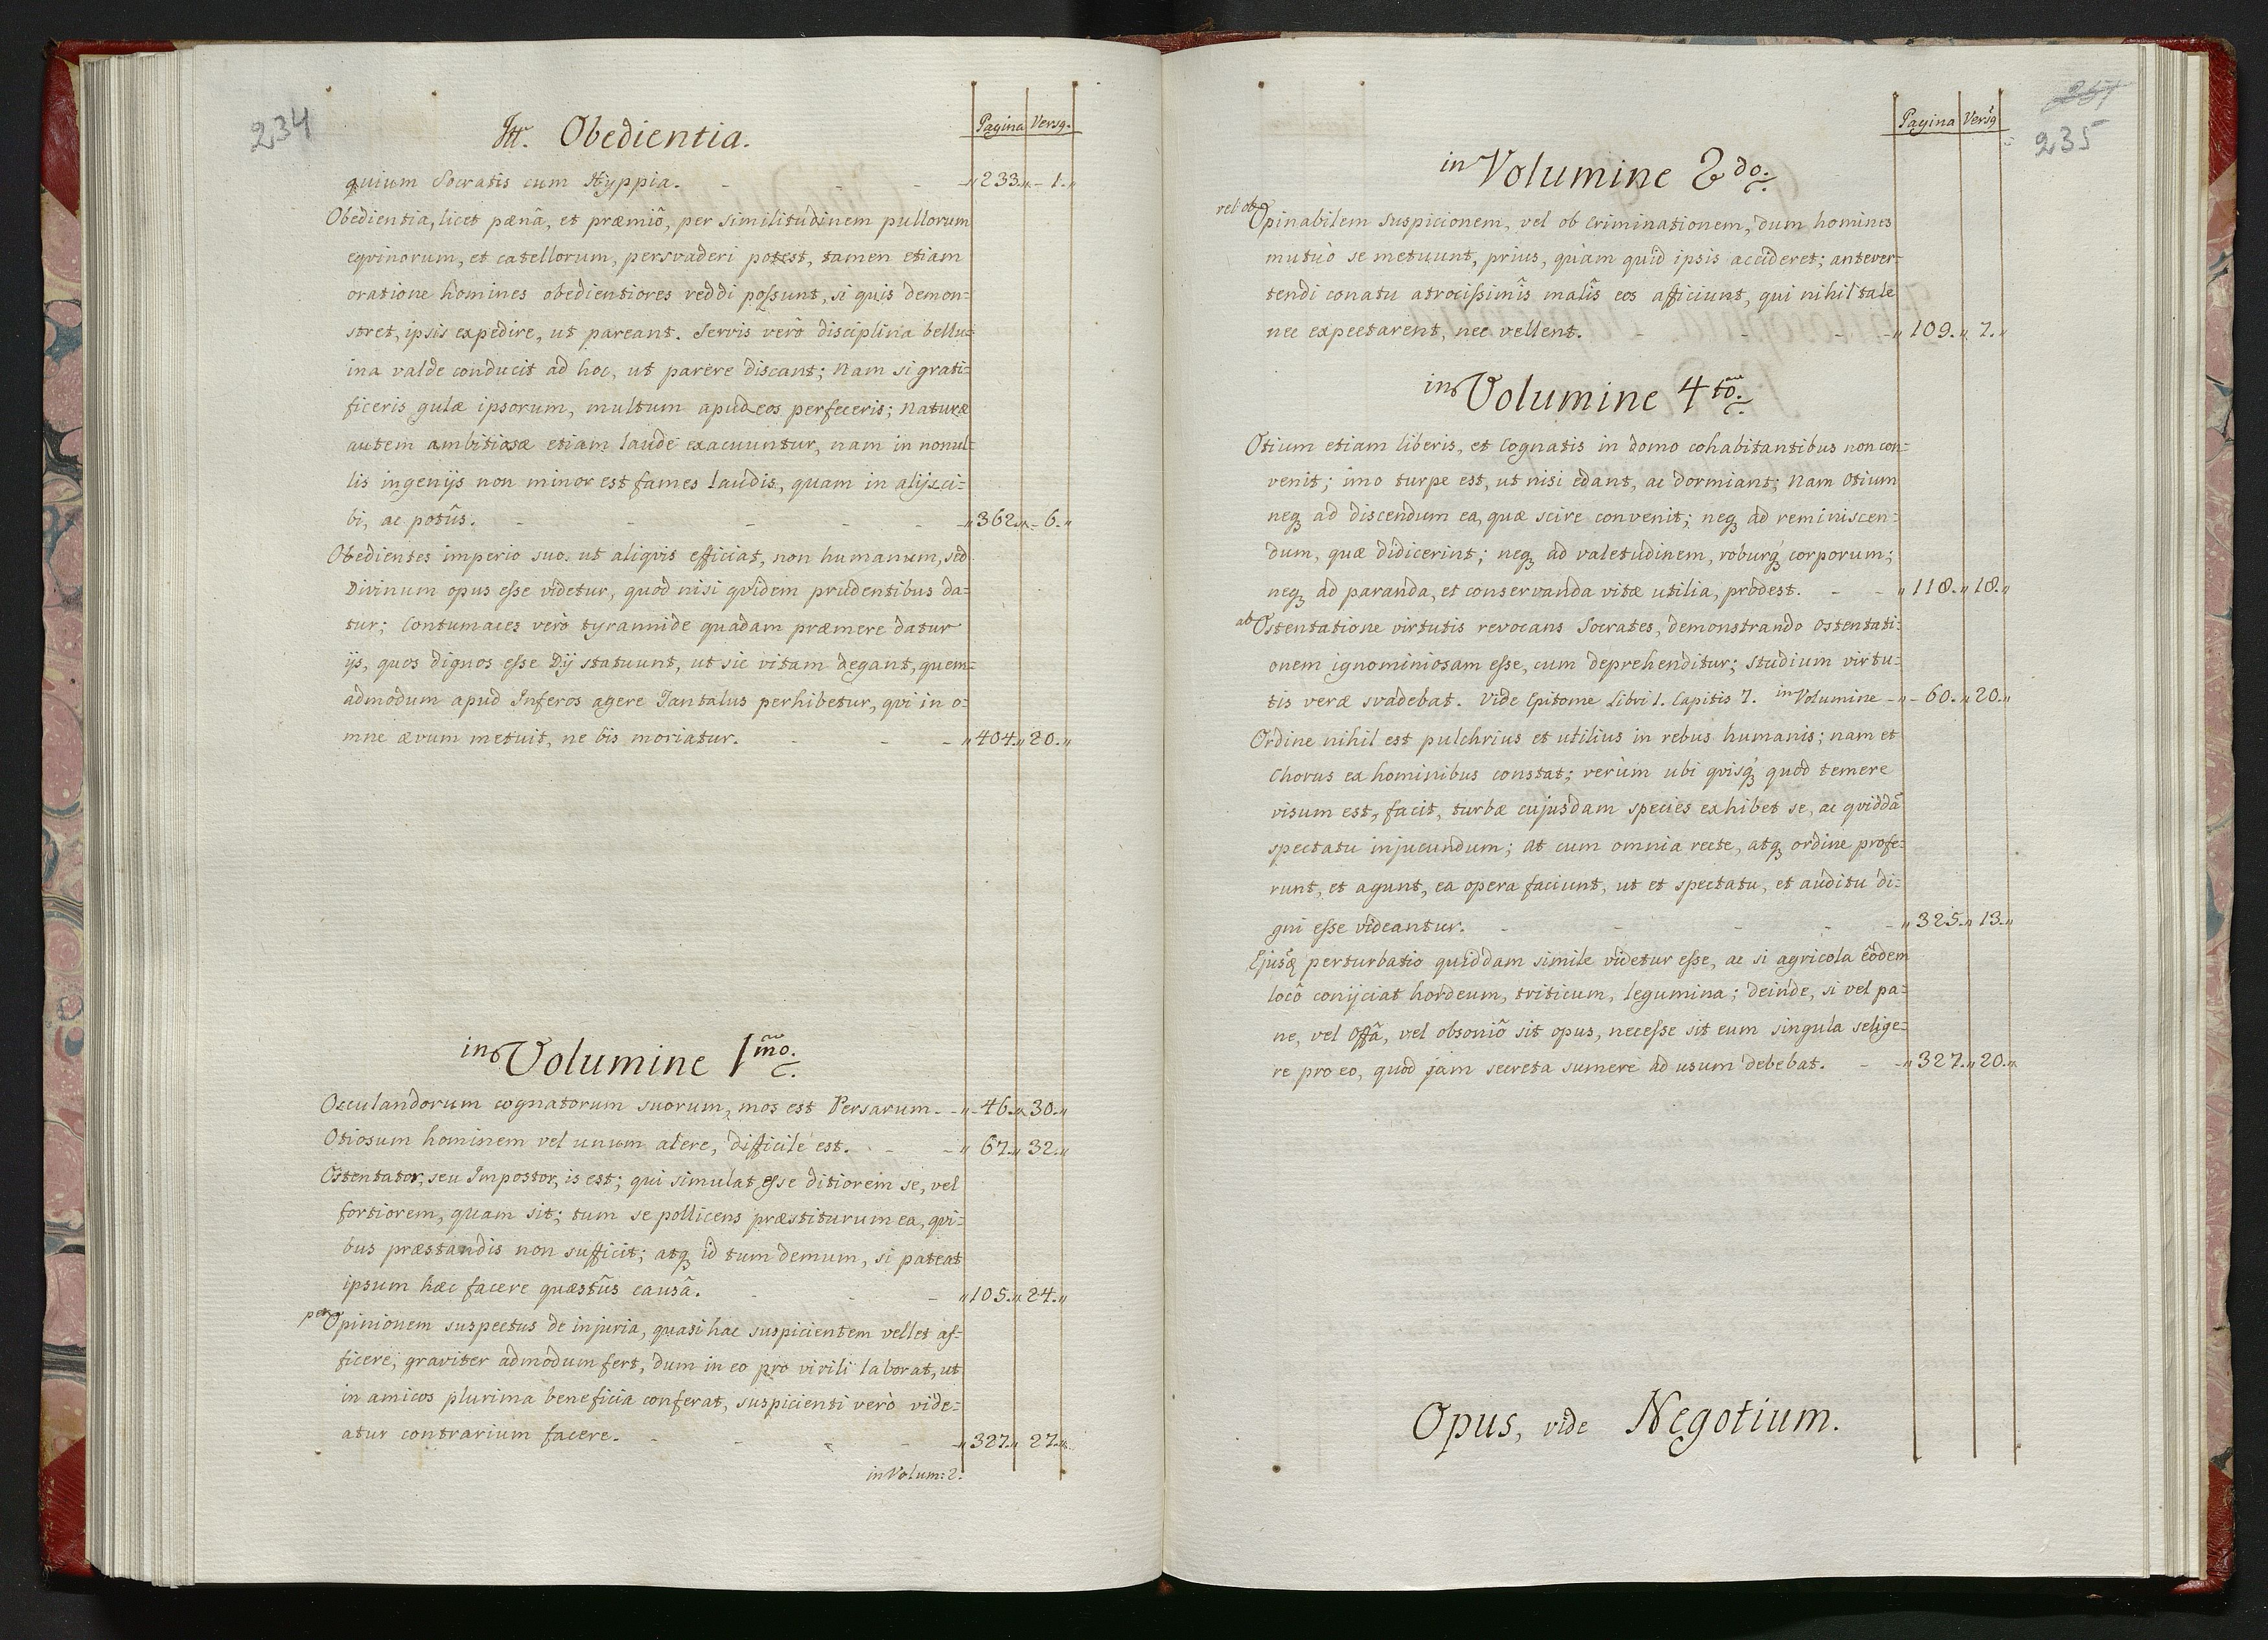 234
Itt. Obedientia.
Pagina Versq.
quium Socratis cum Hyppia. - - - „233.„ - 1.„
Obedientia, licet pænâ, et præmiô, per similitudinem pullorum
eqvinorum, et catellorum, persvaderi potest, tamen etiam
oratione homines obedientiores reddi possunt, si quis demon=
stret, ipsis expedire, ut pareant. Servis verò disciplina bellu=
ina valde conducit ad hoc, ut parere discant; Nam si grati=
ficeris gulæ ipsorum, multum apud eos perfeceris; Naturæ
autem ambitiosæ etiam laude exacuuntur, nam in nonul=
lis ingenijs non minor est fames laudis, quam in alijs ci=
bi, ac potûs. - - - - - „362.„ - 6.„
Obedientes imperio suo ut aliqvis efficiat, non humanum, sed
Divinum opus esse videtur, quod nisi qvidem prudentibus da=
tur; Contumaces verò tyrannide quadam præmere datur
ijs, quos dignos esse Dij statuunt, ut sic vitam degant, quem=
admodum apud Inferos agere Tantalus perhibetur, qvi in o=
mne ævum metuit, ne bis moriatur. - - - „404.„ 20.„
in Volumine 1mo.
Occulandorum cognatorum suorum, mos est Persarum. - „ - 46.„ 30.„
Otiosum hominem vel unum alere, difficile est. - - „ 67.„ 32.„
Ostentator, seu Impostor, is est; qui simulat esse ditiorem se, vel
fortiorem, quam sit; tum se pollicens præstiturum ea, qvi=
bus præstandis non sufficit; atq3 id tum demum, si pateat
ipsum hæc facere quæstûs causâ. - - - „105.„ 24.„
per Opinionem suspectus de injuria, quasi hac suspicientem vellet af=
ficere, graviter admodum fert, dum in eo pro virili laborat, ut
in amicos plurima beneficia conferat, suspicienti verò vide=
atur contrarium facere. - - - - „327.„ 27.„
in Volum: 2.
235
Pagina Versq
in Volumine 2do.
vel ob Opinabilem suspicionem, vel ob Criminationem, dum homines
mutuò se metuunt, prius, quàm quid ipsis accideret; antever=
tendi conatu atrocissimîs malîs eos afficiunt, qui nihil tale
nec expectarent, nec vellent. - - - - „109.„ 7.„
in Volumine 4to.
Otium etiam liberis, et Cognatis in domo cohabitantibus non con=
venit; imo turpe est, ut nisi edant, ac dormiant; Nam Otium
neq3 ad discendum ea, quæ scire convenit; neq3 ad reminiscen=
dum, quæ didicerint; neq3 ad valetudinem, roburq3 corporum;
neq3 ad paranda, et conservanda vitæ utilia, prodest. - - „118.„ 18.„
ab Ostentatione virtutis revocans Socrates, demonstrando ostentati=
onem ignominiosam esse, cum deprehenditur; studium virtu=
tis veræ svadebat. Vide Epitome Libri 1. Capitis 7. in Volumine - „ - 60.„ 20.„
Ordine nihil est pulchrius et utilius in rebus humanis; nam et
Chorus ex hominibus constat; verùm ubi qvisq3 quod temere
visum est, facit, turbæ cujusdam species exhibet se, ac qviddã
spectatu injucundum; at cum omnia recte, atq3 ordine profe=
runt, et agunt, ea opera faciunt, ut et spectatu, et auditu di=
gni esse videantur. - - - - - „325.„ 13.„
Ejusq3 perturbatio quiddam simile videtur esse, ac si agricola eôdem
locô conijciat hordeum, triticum, legumina; deinde, si vel pa=
ne, vel Offâ, vel obsoniô sit opus, necesse sit eum singula selige=
re pro eo, quod jam secreta sumere ad usum debebat. - - „327.„ 20.„
Opus, vide Negotium.